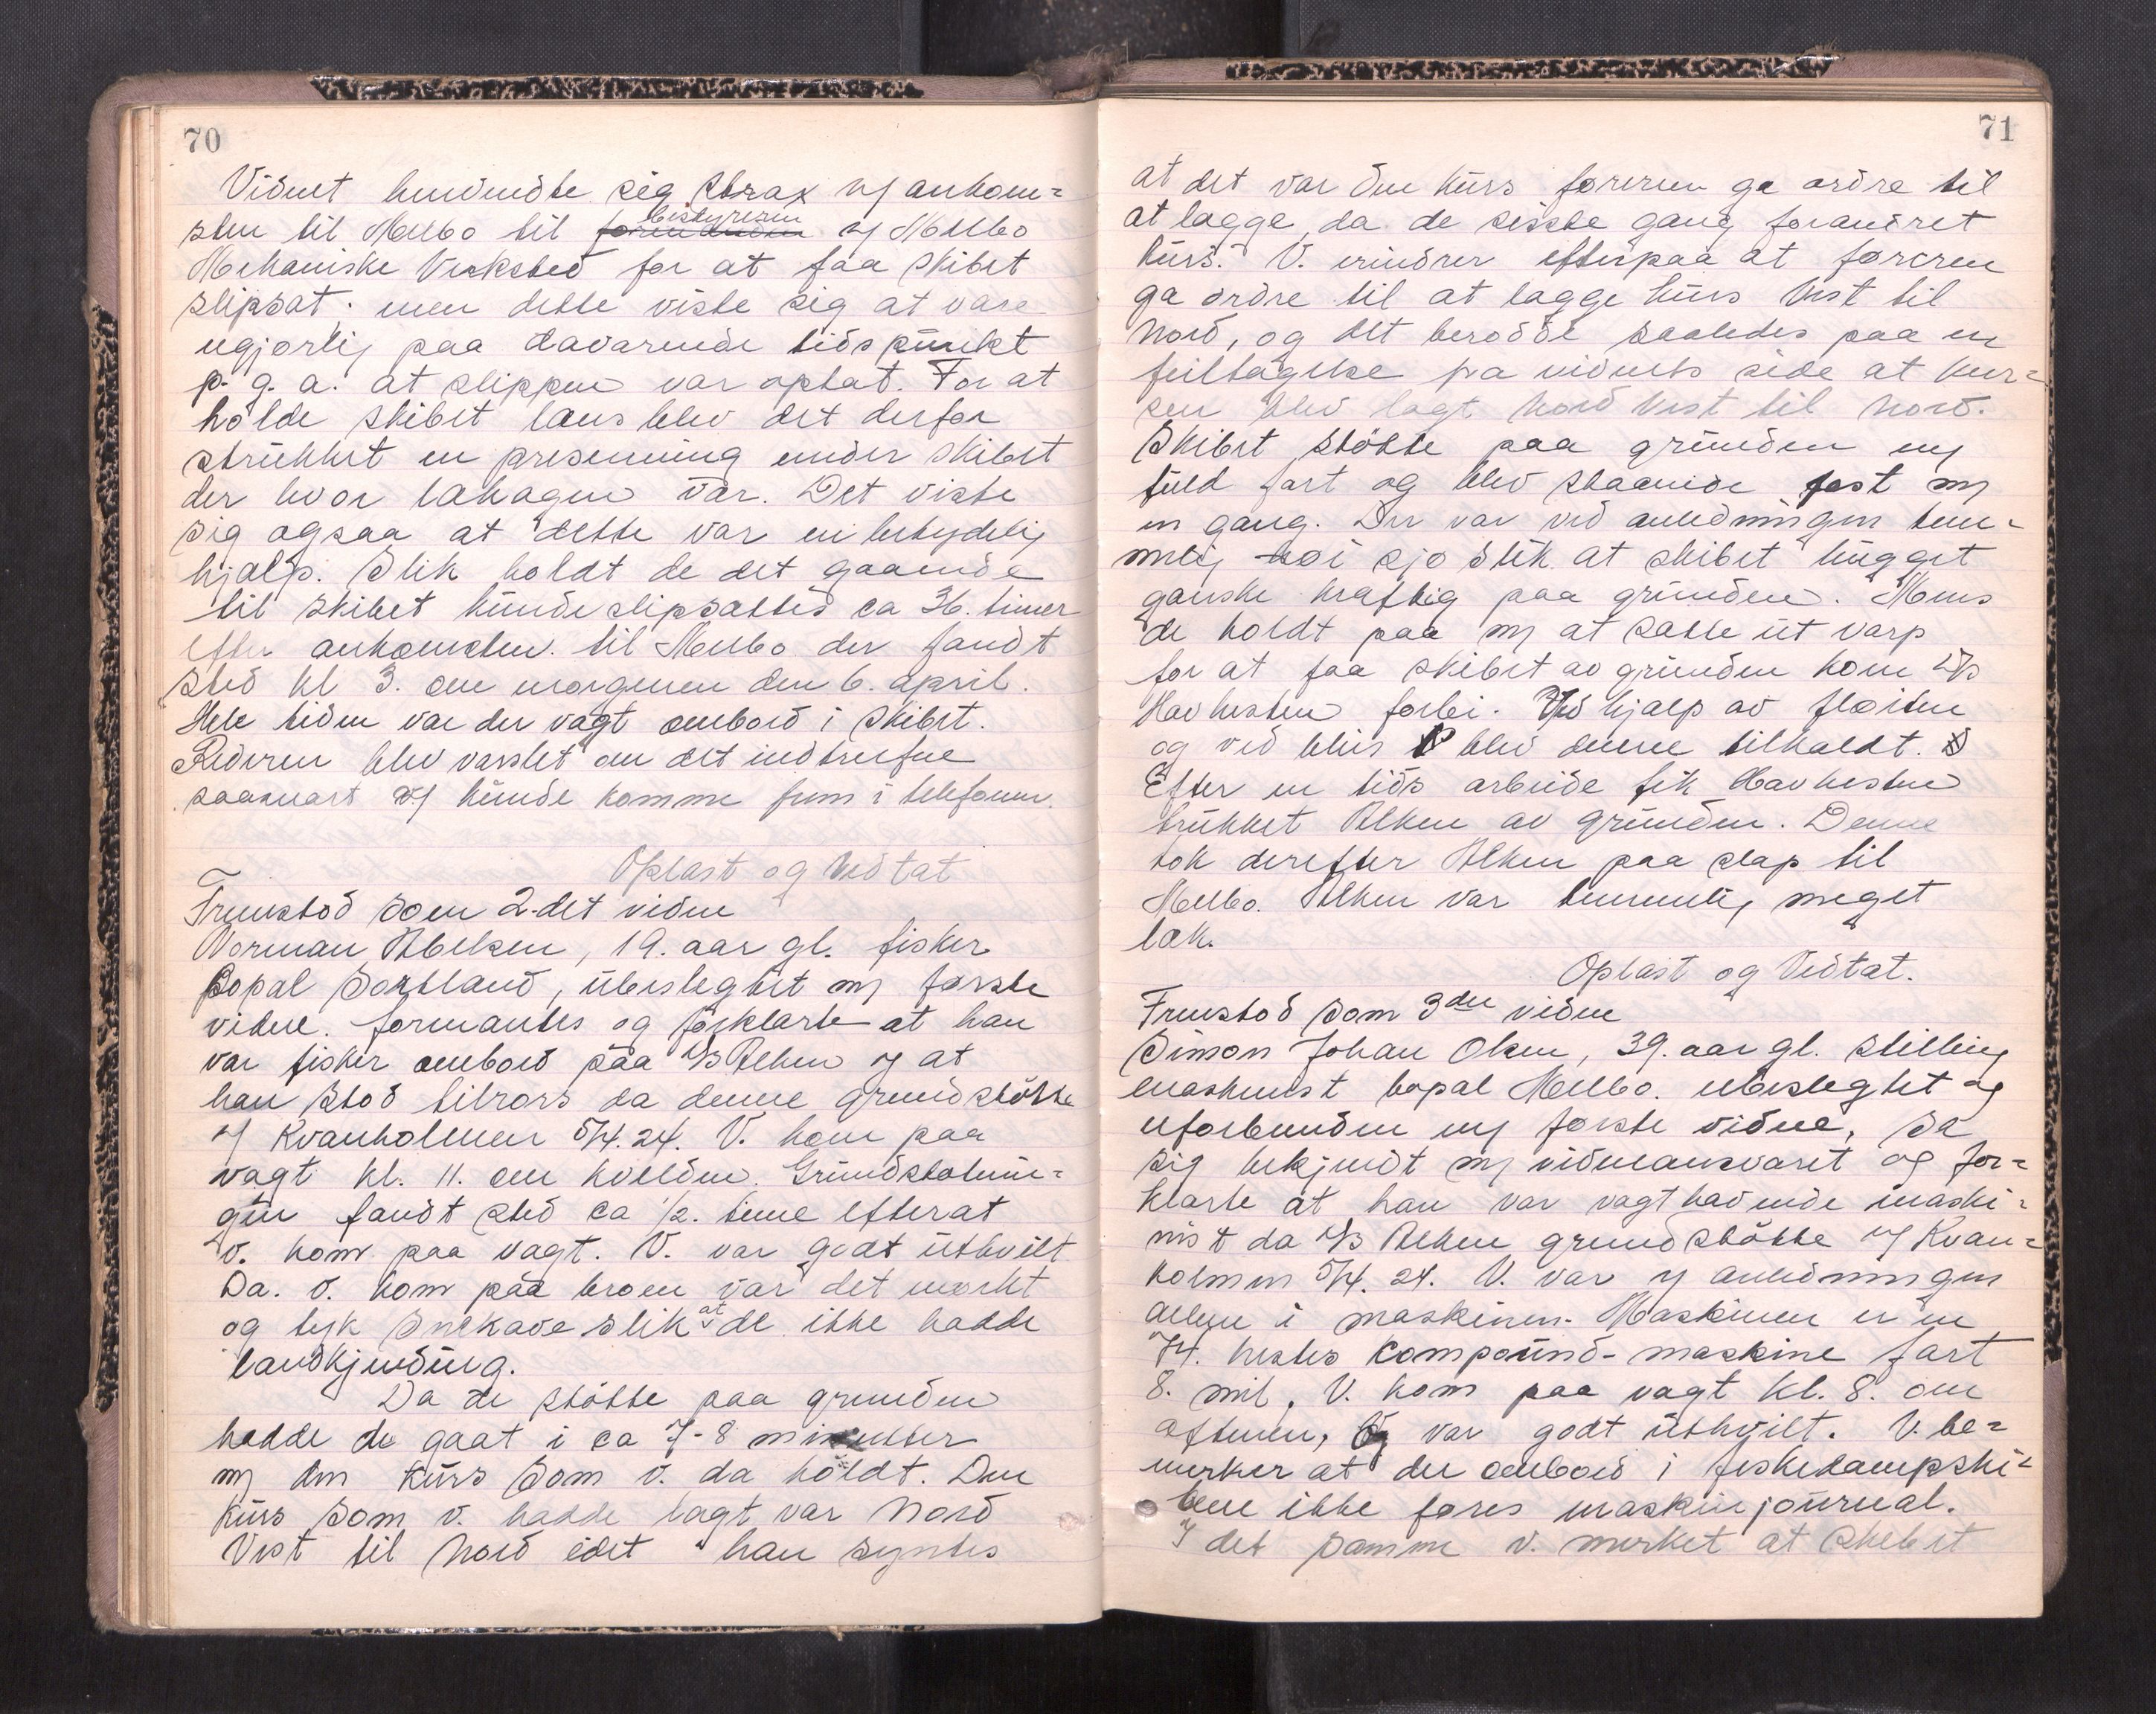 70
Vidnet henvendte sig strax v/ ankom=
sten til Melbo til bestyreren v/ Melbo
Mekaniske Verksted for at faa skibet
slipsat. men dette viste sig at være
ugjørlig paa daværende tidspunkt
p. g. a. at slippen var optat. For at
holde skibet læns blev det derfor
strukket en presenning under skibet
der hvor lækagen var. Det viste
sig ogsaa at dette var en betydelig
hjælp. Slik holdt de det gaaende
til skibet kunde slipsættes ca 36. timer
efter ankomsten til Melbo der fandt
sted kl 3. om morgenen den 6. april.
Hele tiden var der vagt ombord i skibet.
Rederen blev varslet om det indtrufne
saasnart v/ kunde komme frem i telefonen.
Oplæst og Vedtat
Fremstod som 2-det vidne
Norman Abelsen, 19. aar gl. fisker
Bopæl Sortland, übeslegtet m/ første
vidne. formantes og forklarte at han
var fisker ombord paa D/S Alken og at
han stod tilrors da denne grundstøtte
v/ Kvanholmen 5/4. 24. V. kom paa
vagt kl. 11. om kvelden. Grundstøtnin=
gen fandt sted ca 1/2. time efterat
v. kom paa vagt. V. var godt uthvilt
Da. v. kom paa broen var det mørkt
og tyk Snekave slik at de ikke hadde
landkjending.
Da de støtte paa grunden
hadde de gaat i ca 7-8 minutter
m/ den Kurs Som v. da holdt. Den
Kurs som v. hadde lagt var Nord
Vest til Nord idet han syntes
71
at det var den kurs føreren ga ordre til
at lægge, da de sisste gang forandret
kurs. V. erindrer efterpaa at føreren
ga ordre til at lægge kurs Vest til
Nord, og det berodde saaledes paa en
feiltagelse fra vidnets side at kur=
sen blev lagt Nord Vest til Nord.
Skibet støtte paa grunden m/
fuld fart og blev staaende fast m/
en gang. Der var ved anledningen tem=
melig høi sjø slik at skibet hugget
ganske kraftig paa grunden. Mens
de holdt paa m/ at sætte ut varp
for at faa skibet av grunden kom D/S
Havhesten forbi. Ved hjælp av fløiten
og ved blus blev denne tilkaldt.
Efter en tids arbeide fik Havhesten
trukket Alken av grunden. Denne
tok derefter Alken paa slæp til
Melbo. Alken var temmelig meget
læk.
Oplæst og Vedtat.
Fremstod som 3die vidne
Simon Johan Olsen, 39. aar gl. stilling
maskinist bopæl Melbo. ubeslegtet og
uforbunden m/ første vidne, Sa
sig bekjendt m/ vidneansvaret og for=
klarte at han var vagthavende maski=
nist da D/S Alken grundstøtte v/ Kvan=
holmen 5/4. 24. V. var v/ anledningen
allene i maskinen. Maskinen er en
74. hestes Kompound-maskine fart
8. mil. V. kom paa vagt kl. 8. om
aftenen, Og var godt uthvilt. V. be=
merker at der ombord i fiskedampski=
bene ikke føres maskinjournal.
I det samme v. merket at skibet